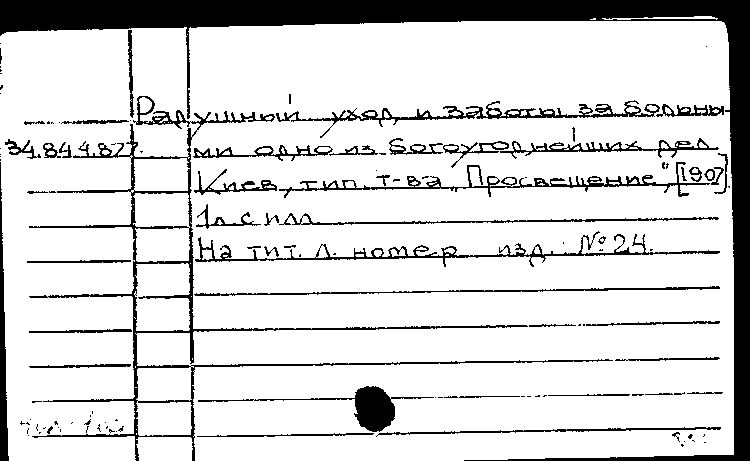 Радушный уход и заботы за больны-
34.844.877. ми одно из богоугоднейших дел
Киев, тип. т-ва „Просвещение", [1907]
1л с илл
На тит. л. номер изд. №24.